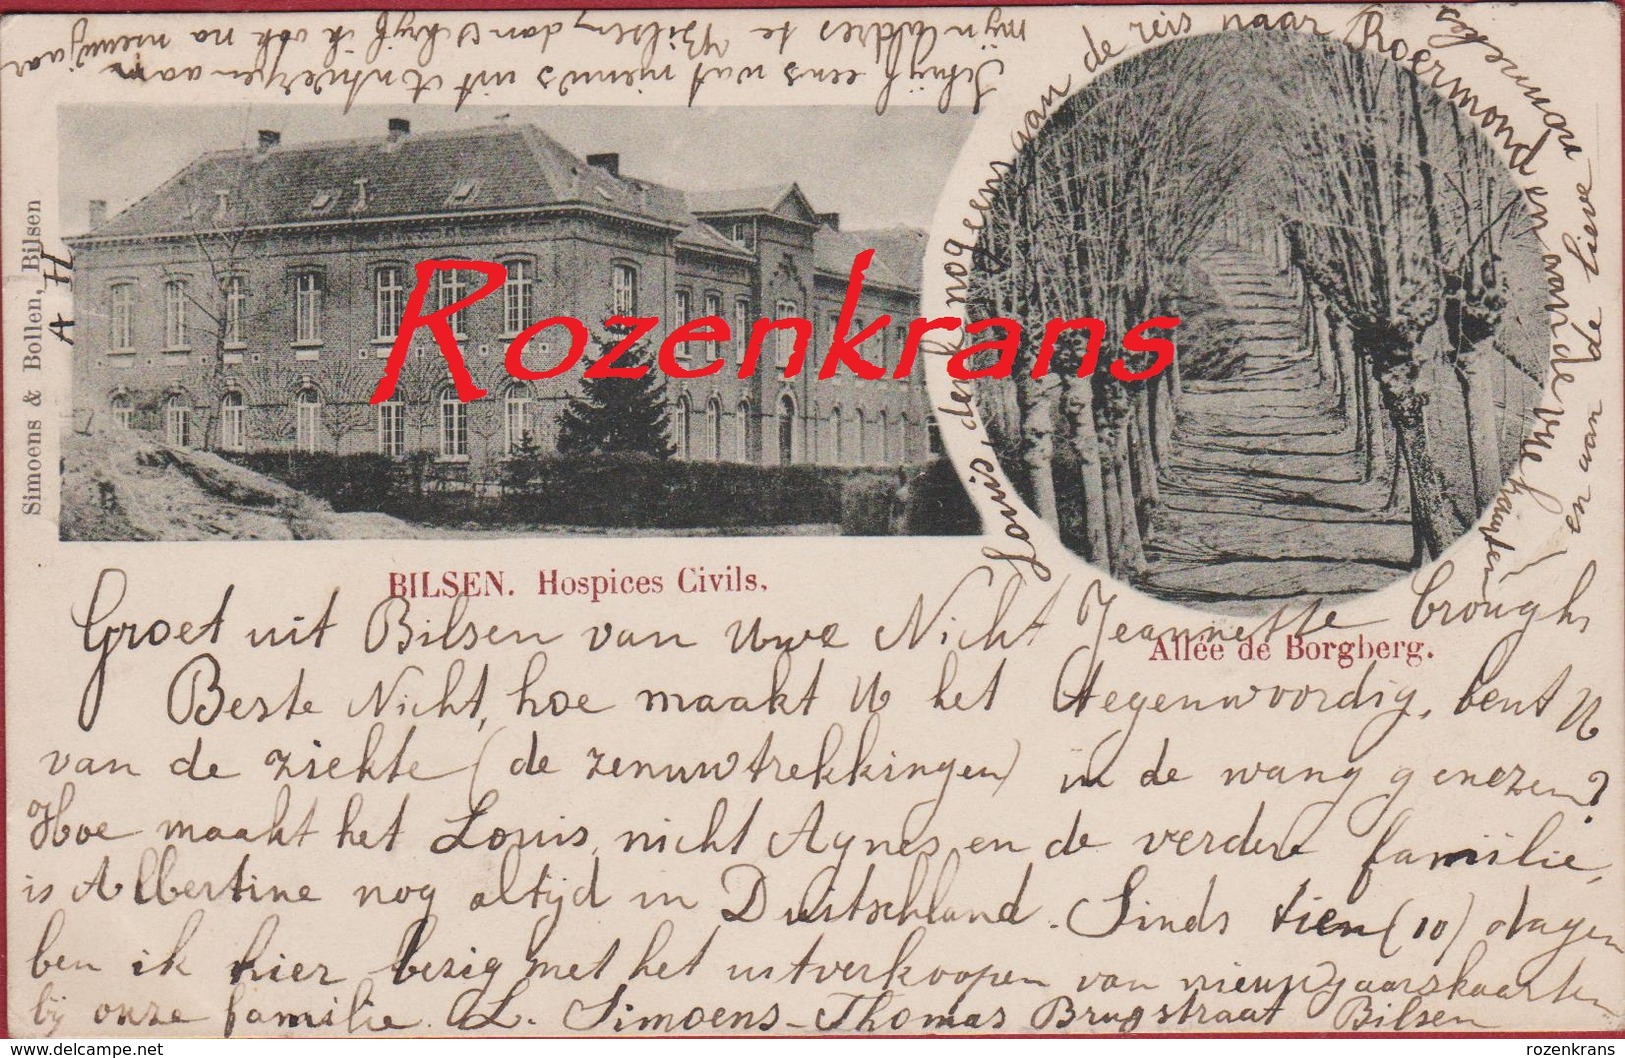 Schrijf eens wat nieuws uit Antwerpen aan
mijn adres te Bilsen, dan schrijf ik ook na nieuwjaar
Louis, denk nog eens aan de reis naar Roermond en aan de vye kransten en aan de lieve nonnekes
Simoens & Bollen, Bilsen
A H
Rozenkrans
BILSEN. Hospices Civils.
Allée de Borgberg.
Groet uit Bilsen van Uwe Nicht Jeannette Croughs
Beste Nicht, hoe maakt U het tegenwoordig, bent U
van de ziekte (de zenuwtrekkingen) in de wang genezen?
Hoe maakt het Louis, nicht Agnes en de verdere familie,
is Albertine nog altijd in Duitschland. Sinds tien (10) dagen
ben ik hier bezig met het uitverkoopen van nieuwjaarskaarten
bij onze familie. L. Simoens-Thomas Brugstraat Bilsen
© delcampe.net
rozenkrans